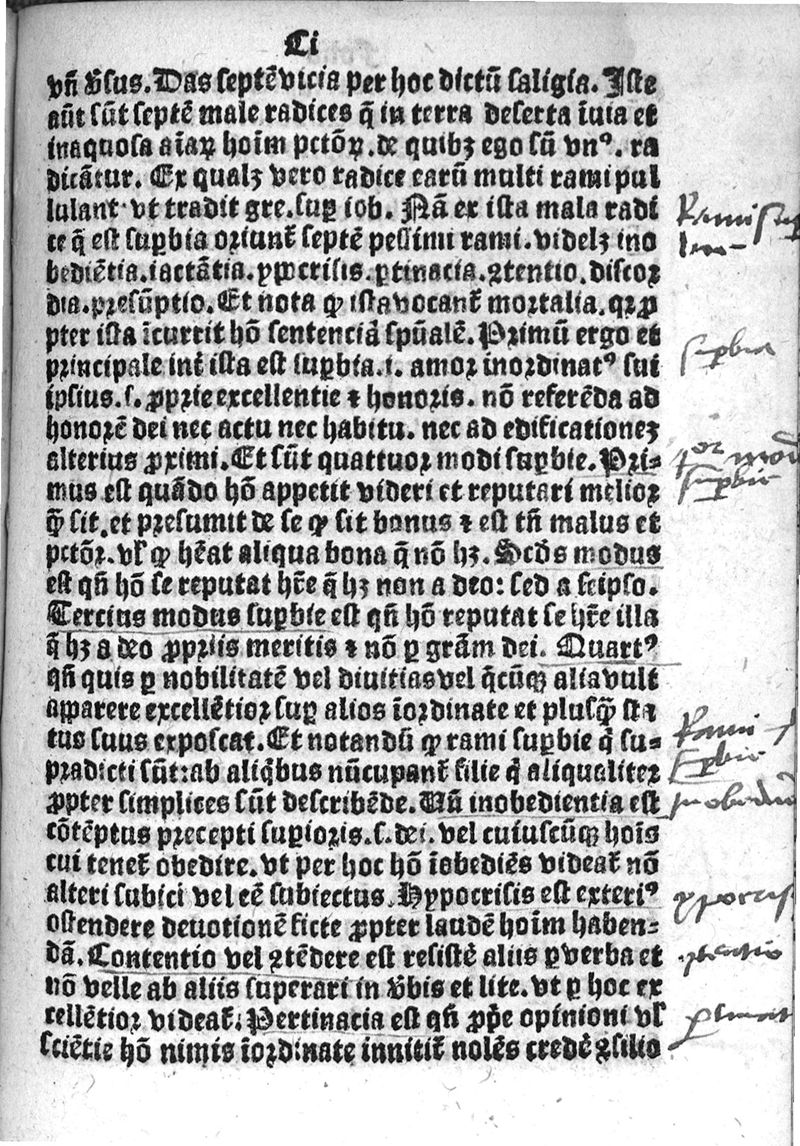 Ci
vn̄ v̉sus. Das septē vicia per hoc dictū saligia. Iste
aūt sūt septē male radices q̄ in terra deserta īuia et
inaquosa aīaꝝ hoīm pctōꝝ. de quibꝫ ego sū vnꝰ. ra
dicātur. Ex qualꝫ vero radice earū multi rami pul
lulant. vt tradit gre. suꝑ iob. Nā ex ista mala radi
ce q̄ est suꝑbia oriunt̄ septē pessimi rami. videlꝫ ino
bediētia. iactātia. ypocrisis. ꝑtinacia. ꝯtentio. discor
dia. presūptio. Et nota ꝙ ista vocant̄ mortalia. qꝛ ꝓ
pter ista īcurrit hō sentenciā spūalē. Primū ergo et
principale int̄ ista est suꝑbia. i. amor inordinatꝰ sui
ipsius. s. ꝓprie excellentie ⁊ honoris. nō referēda ad
honorē dei nec actu nec habitu. nec ad edificationeꝫ
alterius ꝓximi. Et sūt quattuor modi suꝑbie. Pri⸗
mus est quādo hō appetit videri et reputari melior
ꝙ̄ sit. et presumit de se ꝙ sit bonus ⁊ est tn̄ malus et
pctōr. vꝉ ꝙ hēat aliqua bona q̄ nō hꝫ. Scd̄s modus
est qn̄ hō se reputat hr̄e q̄ hꝫ non a deo: sed a seipso.
Tercius modus suꝑbie est qn̄ hō reputat se hr̄e illa
q̄ hꝫ a deo ꝓpriis meritis ⁊ nō ꝑ grām dei. Quartꝰ
qn̄ quis ꝑ nobilitatē vel diuitias vel q̄cūqꝫ alia vult
apparere excellētior suꝑ alios īordinate et plusꝙ̄ sta
tus suus exposcat. Et notandū ꝙ rami suꝑbie q̄ su⸗
pradicti sūt: ab aliq̇bus nūcupant̄ filie q̄ aliqualiter
ꝓpter simplices sūt describēde. Vn̄ inobedientia est
cōtēptus precepti suꝑioris. s. dei. vel cuiuscūqꝫ hoīs
cui tenet̄ obedire. vt per hoc hō īobediēs videat̄ nō
alteri subici vel eē subiectus. Hypocrisis est exteriꝰ
ostendere deuotionē ficte ꝓpter laudē hoīm haben⸗
dā. Contentio vel ꝯtēdere est resistē aliis ꝑ verba et
nō velle ab aliis superari in v̉bis et lite. vt ꝑ hoc ex
cellētior videat̄. Pertinacia est qn̄ ꝓpe opinioni vꝉ
sciētie hō nimis īordinate innitit̄ nolēs credē ꝯsilio
Rami
suꝑbia
suꝑbie
Rami
suꝑbie